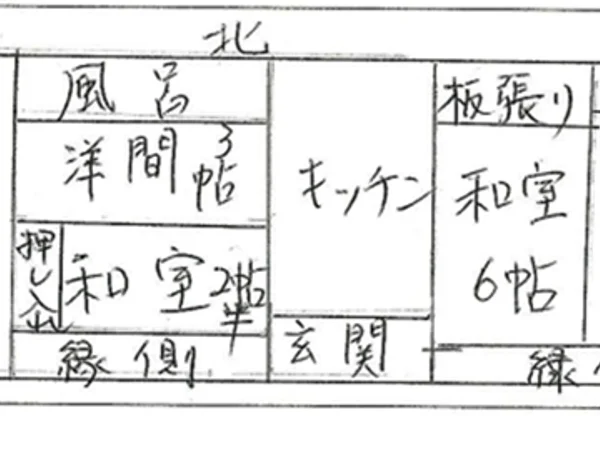 北
風呂
洋間3帖
押し入れ
和室2帖半
縁側
キッチン
玄関
板張り
和室
6帖
縁